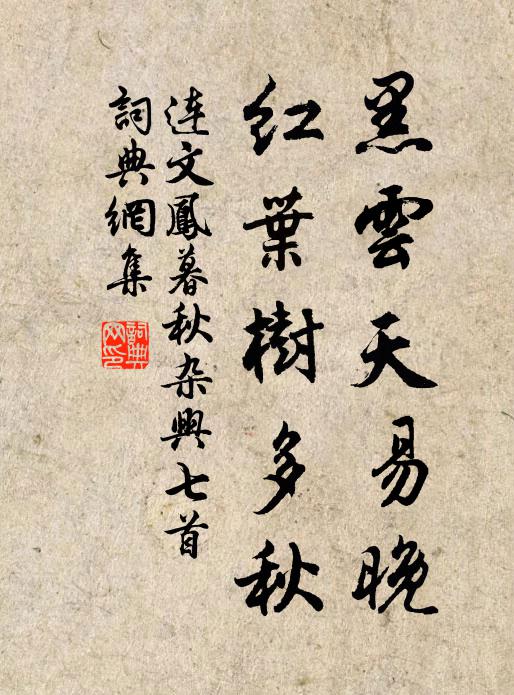 黑雲天易晚
紅葉樹多秋
連文鳳暮秋杂興七首
詞典網集
詞典網印